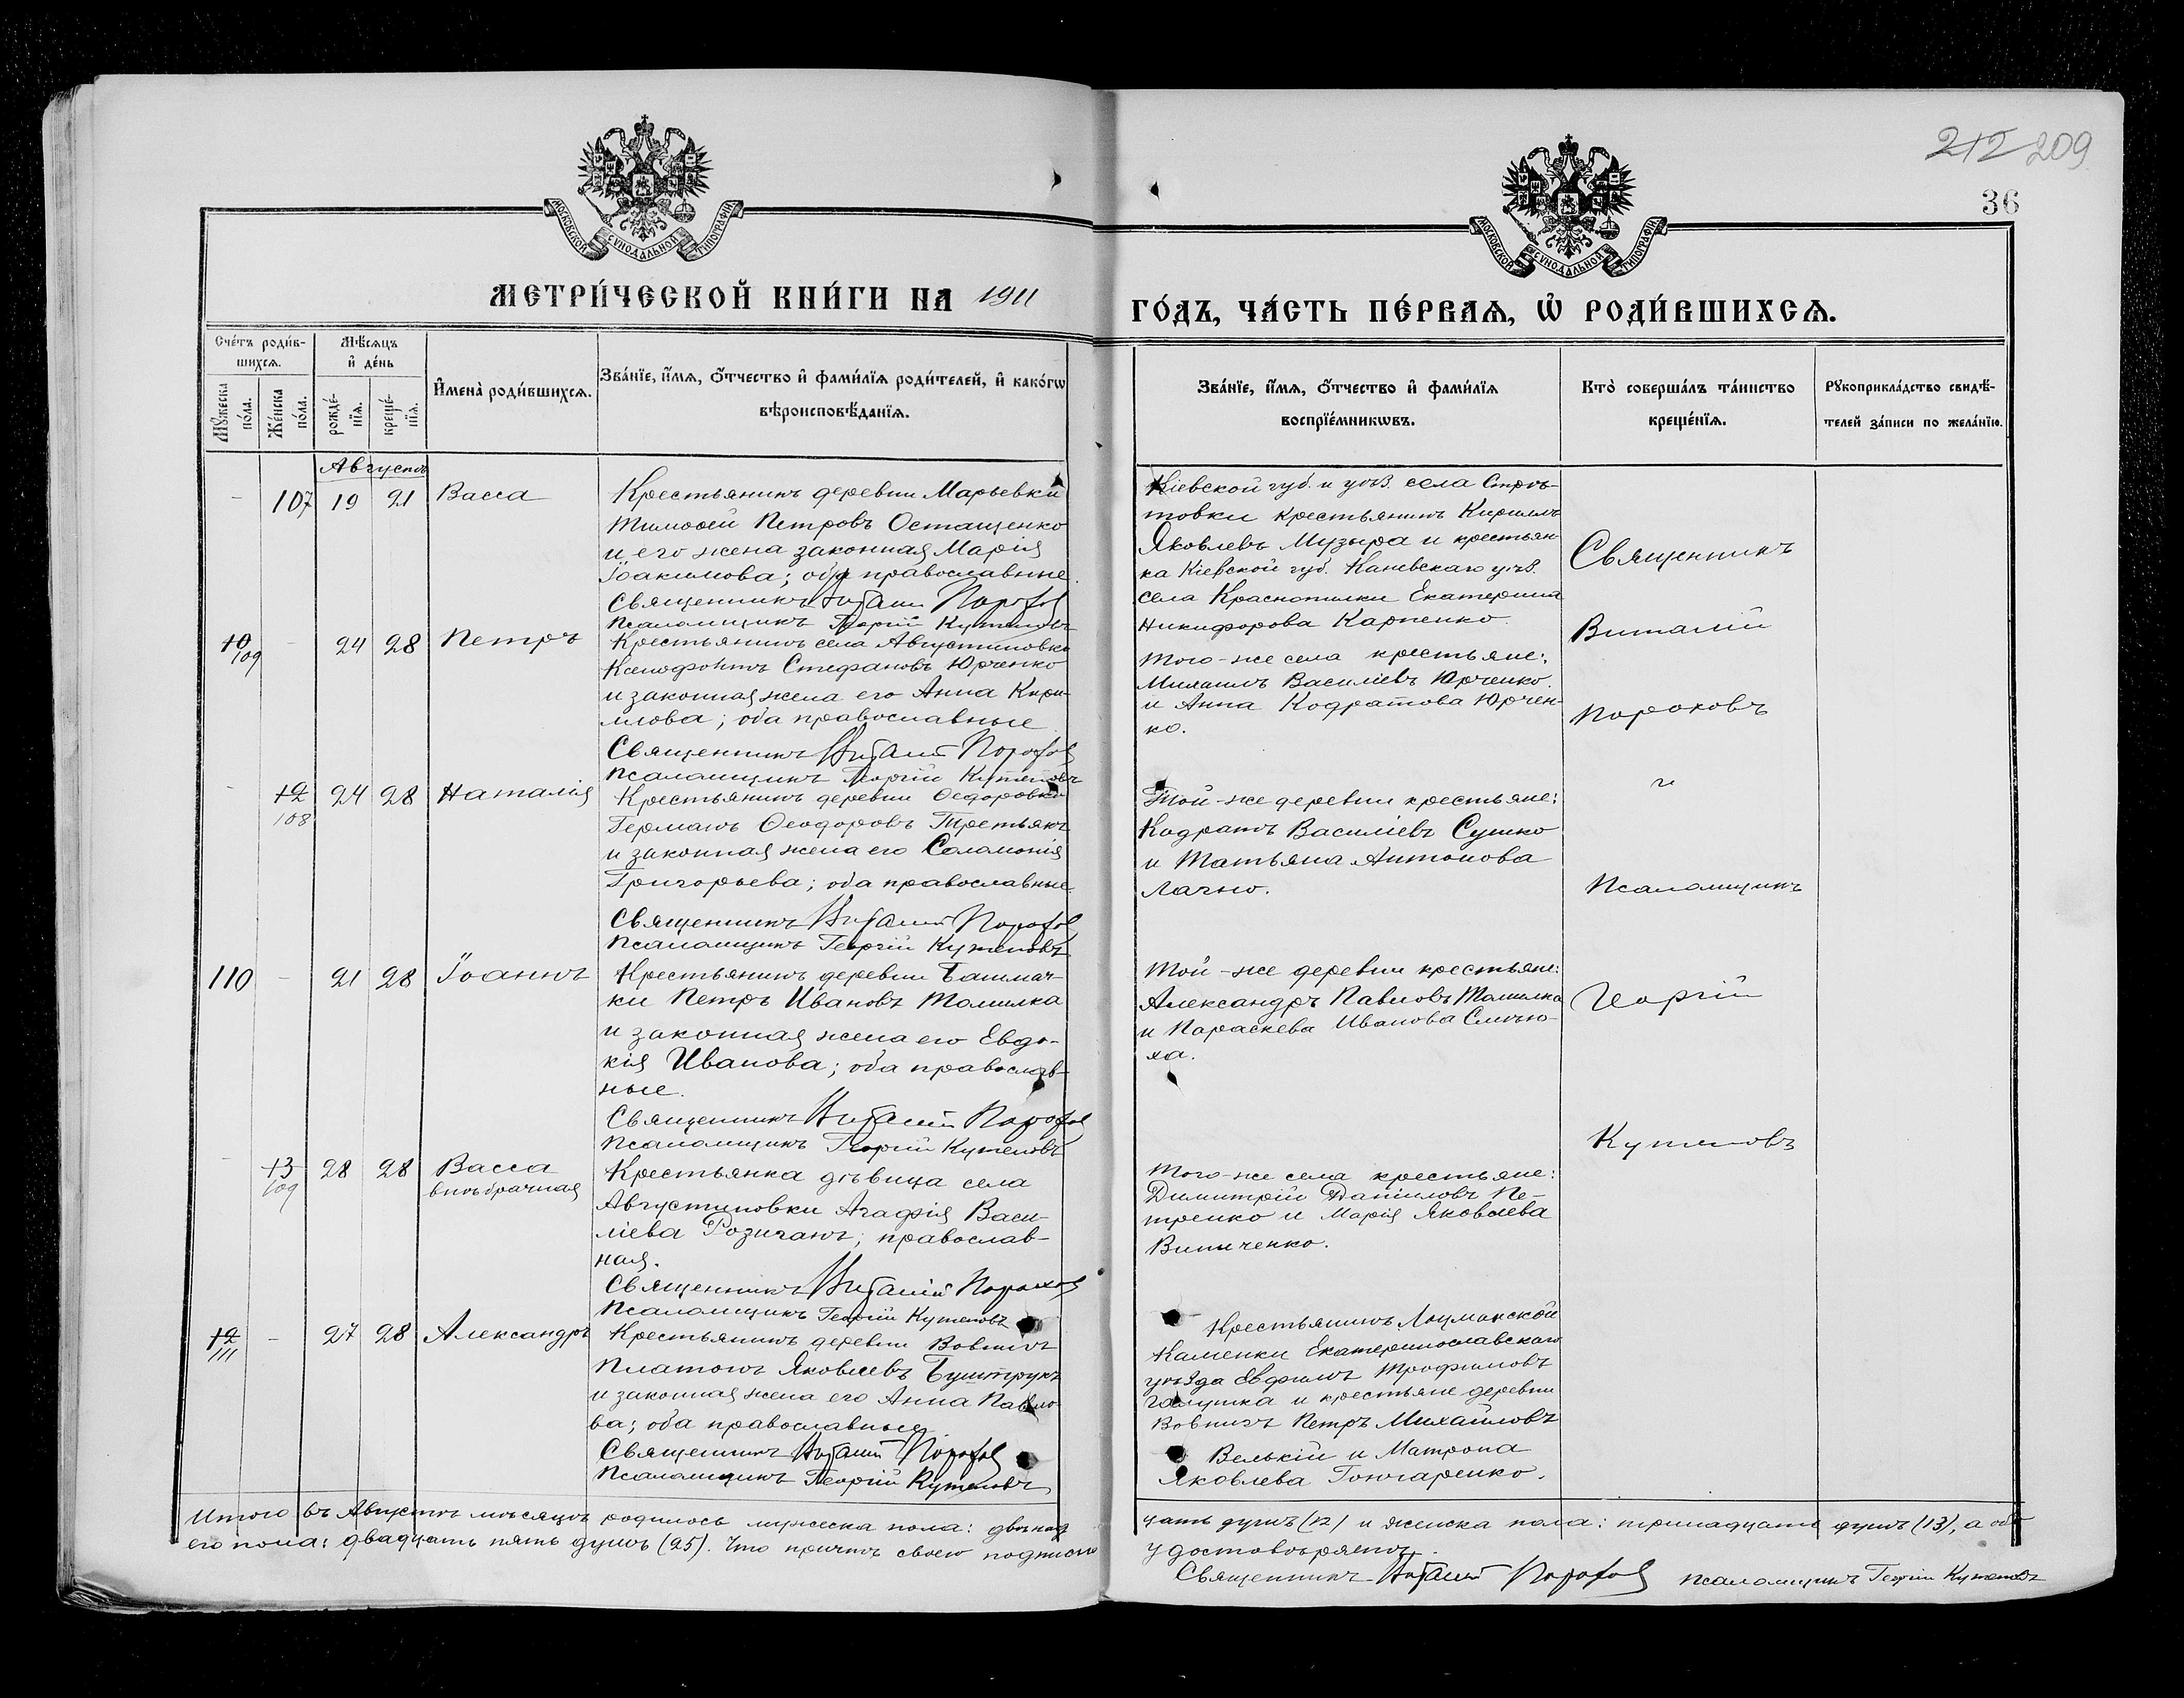 212 209
36
МОСКОВСКОЙ СУНОДАЛЬНОЙ ТИПОГРАФІИ
МОСКОВСКОЙ СУНОДАЛЬНОЙ ТИПОГРАФІИ
МЕТРИ́ЧЕСКОЙ КНИ́ГИ НА 1911
ГО́ДЪ, ЧА́СТЬ ПЕ́РВАѦ, Ѡ҆ РОДИ́ВШИХСѦ.
Сче́тъ роди́в-
шихсѧ.
Мꙋ́жеска
по́ла.
Же́нска
по́ла.
Мѣ́сѧцъ
и҆ де́нь
рожде́-
нїѧ.
креще́-
нїѧ.
И҆мена̀ роди́вшихсѧ.
Зва́нїе, и҆́мѧ, ѻ҆́тчество и҆ фами́лїѧ роди́телей, и҆ како́гѡ
вѣроисповѣ́данїѧ.
Зва́нїе, и҆́мѧ, ѻ҆́тчество и҆ фами́лїѧ
воспрїе́мникѡвъ.
Кто̀ соверша́лъ та́инство
креще́нїѧ.
Рꙋкоприкла́дство свидѣ́-
телей за́писи по жела́нїю.
Августъ
- 107 19 21 Васса
Крестьянинъ деревни Марьевки
Тимоѳей Петровъ Остащенко
и его жена законная Марія
Іоакимова; оба православные.
Священникъ Виталій Пороховъ
Псаломщикъ Георгій Кутеповъ
Кіевской губ. и уѣз. села
товки крестьянинъ Кириллъ
Яковлевъ Музыра и крестьян-
ка Кіевской губ. Каневскаго уѣз.
села Краснопилки Екатерина
Никифорова Карпенко.
10
109 - 24 28 Петръ
Крестьянинъ села Августиновки
Ксенофонтъ Стефановъ Юрченко
и законная жена его Анна Кири-
ллова; оба православные
Священникъ Виталій Пороховъ
Псаломщикъ Георгій Кутеповъ
Того-же села крестьяне:
Михаилъ Василіевъ Юрченко
и Анна Кодратова Юрчен-
ко.
- 12
108 24 28 Наталія
Крестьянинъ деревни Ѳедоровки
Германъ Ѳеодоровъ Третьякъ
и законная жена его Саломонія
Григорьева; оба православные
Священникъ Виталій Пороховъ
Псаломщикъ Георгій Кутеповъ
Той-же деревни крестьяне:
Кодратъ Василіевъ Сушко
и Татьяна Антонова
Лачно.
110 - 21 28 Іоаннъ
Крестьянинъ деревни Башмач-
ки Петръ Ивановъ Томилка
и законная жена его Евдо-
кія Иванова; оба православ-
ные.
Священникъ Виталій Пороховъ
Псаломщикъ Георгій Кутеповъ
Той-же деревни крестьяне:
Александръ Павловъ Томилка
и Параскева Иванова
ха.
- 13
109 28 28 Васса
внѣбрачная
Крестьянка дѣвица села
Августиновки Агафія Васи-
ліева Розиганъ; православ-
ная.
Священникъ Виталій Пороховъ
Псаломщикъ Георгій Кутеповъ
Того-же села крестьяне:
Димитрій Даніиловъ Пе-
тренко и Марія Яковлева
Виниченко.
12
111 - 27 28 Александръ
Крестьянинъ деревни Вовнигъ
Платонъ Яковлевъ Бунтрукъ
и законная жена его Анна Павло-
ва; оба православные
Священникъ Виталій Пороховъ
Псаломщикъ Георгій Кутеповъ
Крестьянинъ Лоцманской
Каменки Екатеринославскаго
уѣзда Евфимъ Трофимовъ
Галушка и крестьяне деревни
Вовнигъ Петръ Михайловъ
Велькій и Матрона
Яковлева Гончаренко.
Священникъ
Виталій
Пороховъ
и
Псаломщикъ
Георгій
Кутеповъ
Итого въ Августѣ мѣсяцѣ родилось мужеска пола: двѣнад
цать душъ (12) и женска пола: тринадцать душъ (13), а обо
его пола: двадцать пять душъ (25). Что причтъ своею подписью
удостовѣряетъ.
Священникъ Виталій Пороховъ Псаломщикъ Георгій Кутеповъ